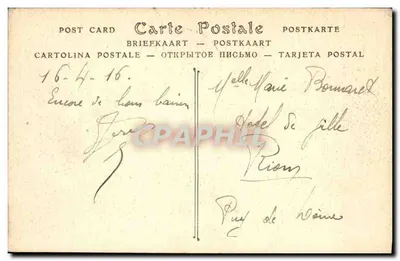 POST CARD Carte Postale POSTKARTE
BRIEFKAART — POSTKAART
CARTOLINA POSTALE — ОТКРЫТОЕ ПИСЬМО — TARJETA POSTAL
16-4-16.
Encore de bons baisers
Melle Marie Bonnaret
Hotel de Ville
Riom
Puy de Dôme
CPAPHIL